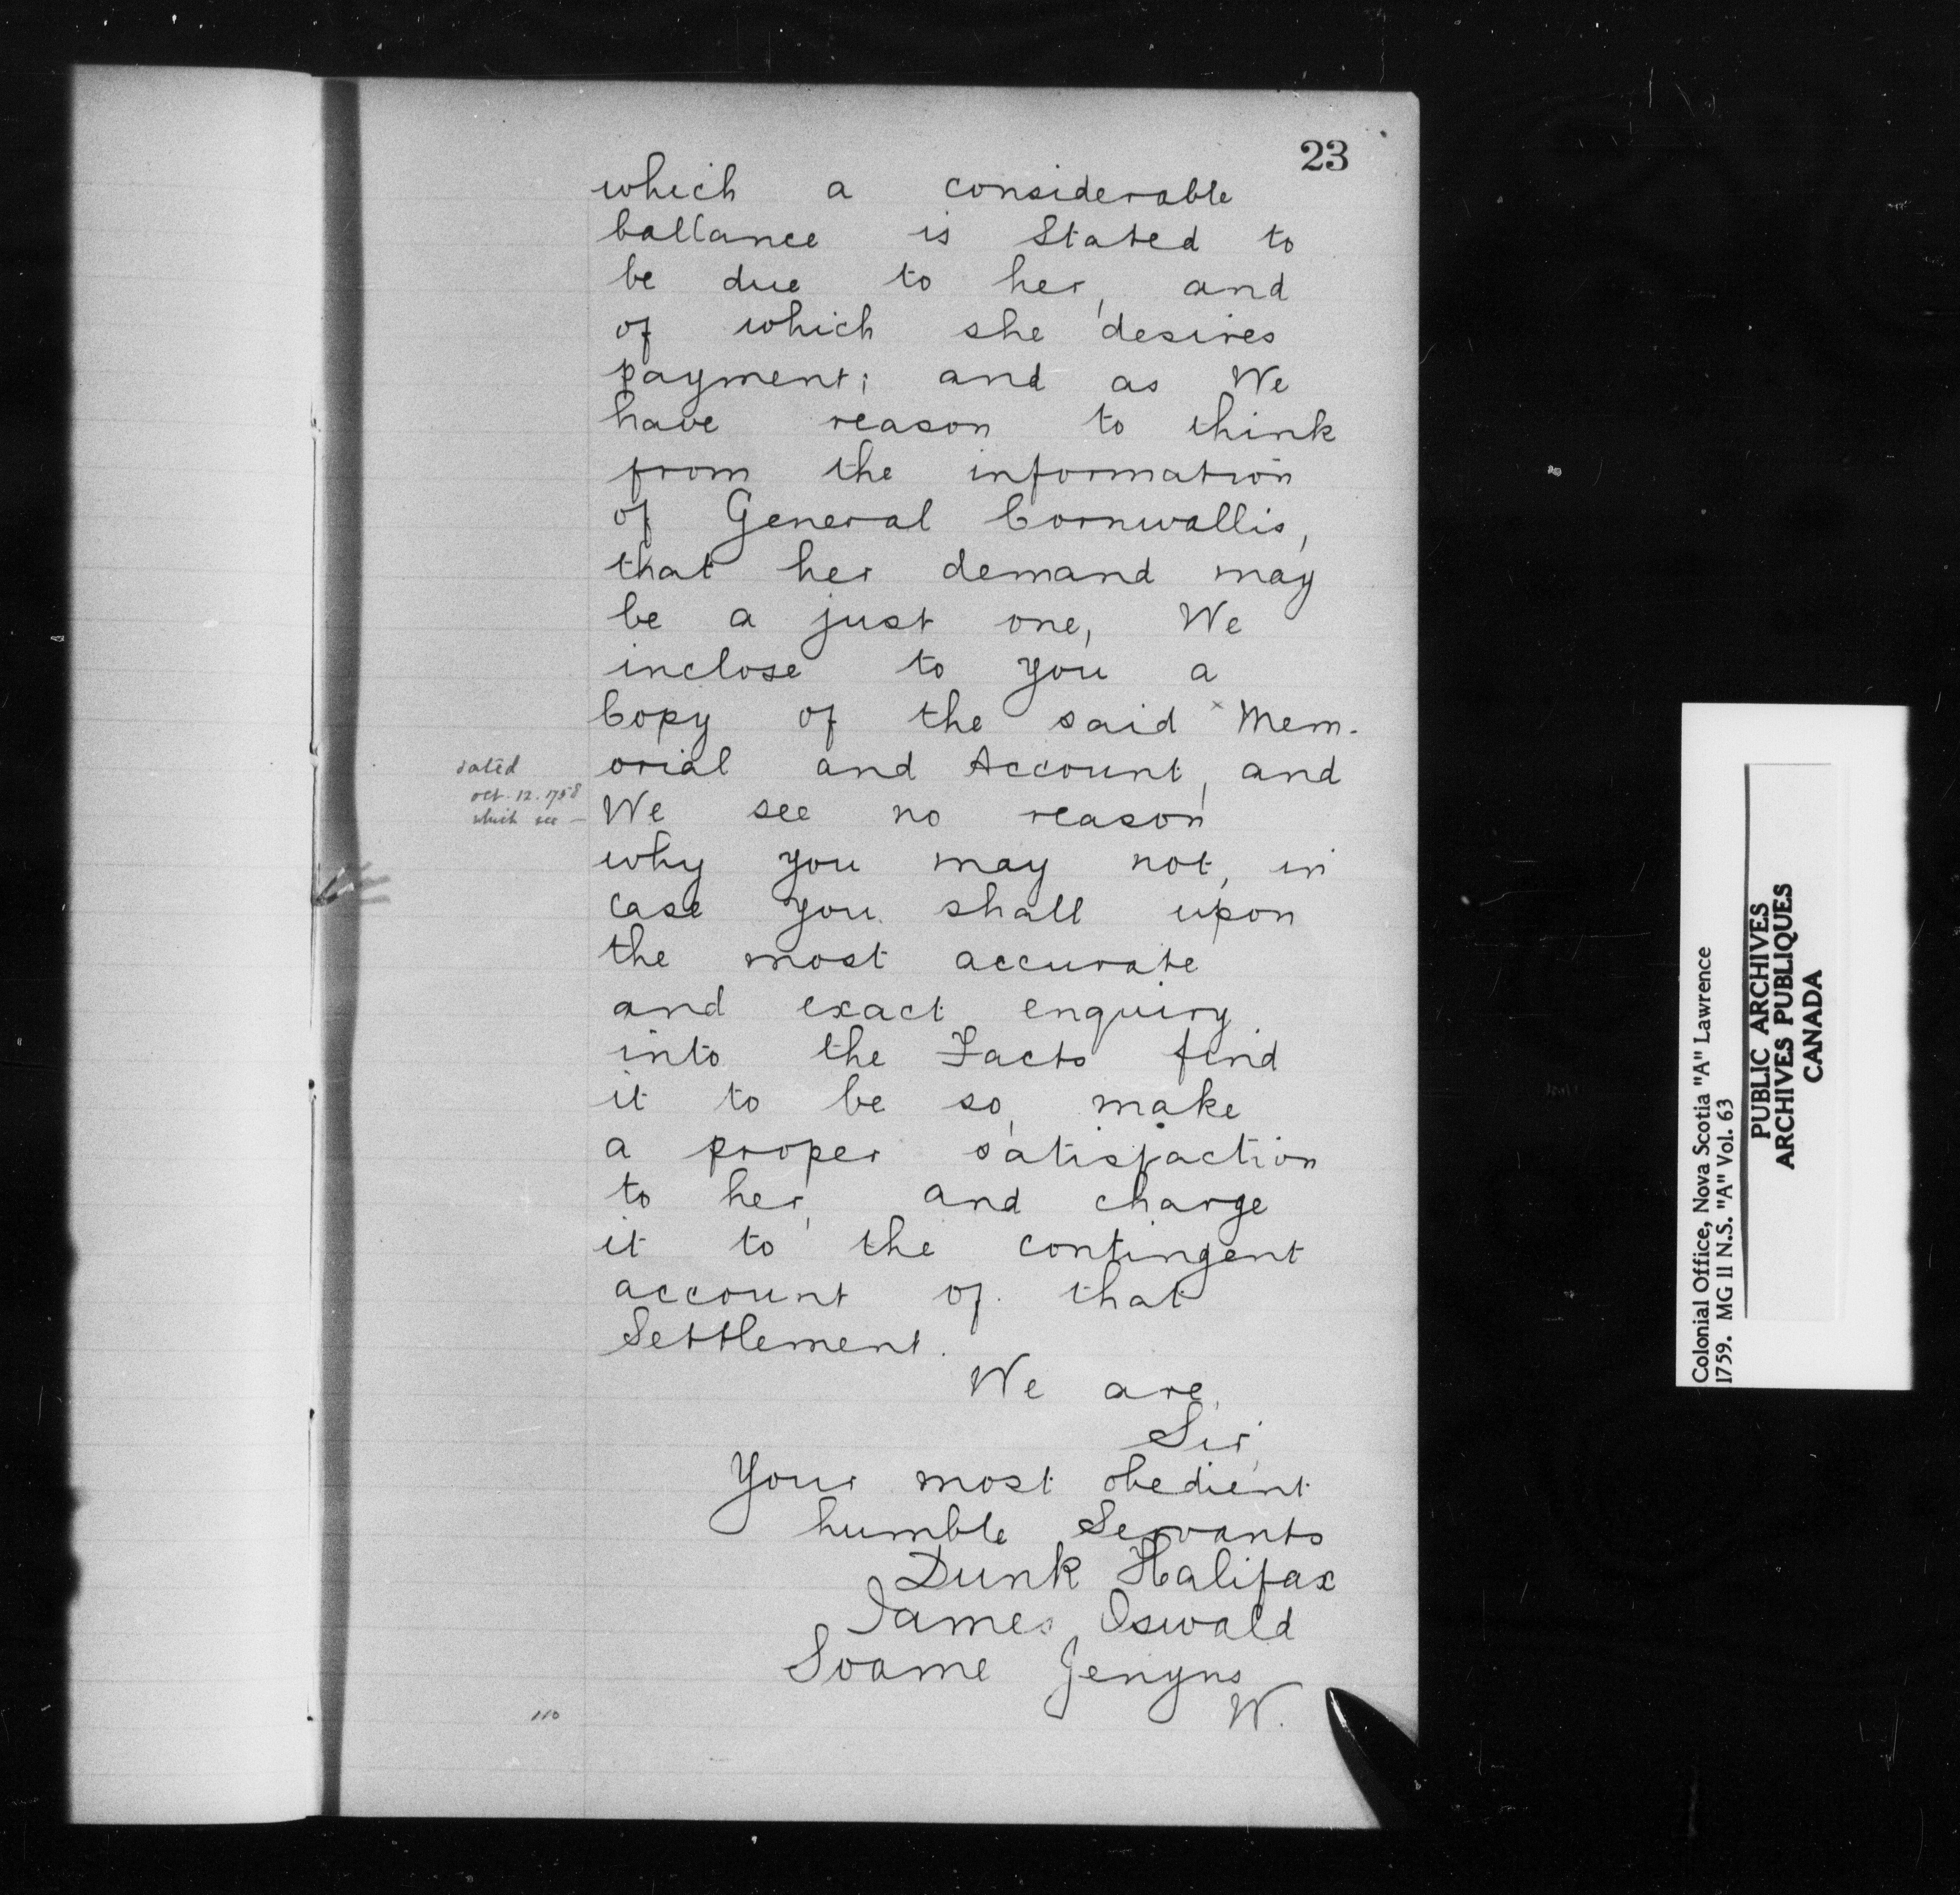 23
which a considerable
ballance is Stated to
be due to her, and
of which she desires
payment; and as We
have reason to think
from the information
of General Cornwallis,
that her demand may
be a just one, We
inclose to you a
Copy of the said × Mem-
orial and Account, and
We see no reason
why you may not, in
case you shall upon
the most accurate
and exact enquiry
into the Facts find
it to be so, make
a proper satisfaction
to her, and charge
it to the contingent
account of that
Settlement.
We are,
Sir,
Your most obedient
humble Servants
Dunk Halifax
James Oswald
Soame Jenyns
W.
dated
oct. 12. 1758
which see —
110
Colonial Office, Nova Scotia "A" Lawrence
1759. MG 11 N.S. "A" Vol. 63
PUBLIC ARCHIVES
ARCHIVES PUBLIQUES
CANADA